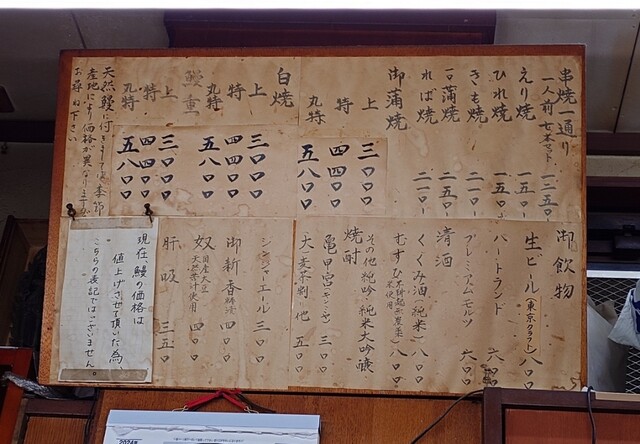 串焼一通り
一人前 七本セット 一二五〇-
えり焼 一五〇-
ひれ焼 一五〇-
きも焼 二一〇-
一口蒲焼 二五〇-
れば焼 二一〇-
御蒲焼
上 三〇〇〇
特 四四〇〇
丸特 五八〇〇
白焼
上 三〇〇〇
特 四四〇〇
丸特 五八〇〇
鰻重
上 三〇〇〇
特 四四〇〇
丸特 五八〇〇
天然鰻に付きまして
産地により価格が異なりますが
お尋ね下さい
御飲物
生ビール(東京クラフト) 八〇〇
ハートランド 六
プレミアムモルツ 六〇〇
清酒
くくみ酒(純米) 八〇〇
むすひ 八〇〇
その他 純吟 純米大吟醸
焼酎
亀甲宮(キンミヤ) 三〇〇
大麦茶割り 他 五〇〇
ジンジャエール 三〇〇
御新香 四〇〇
奴 国産大豆 天然にがり使用 四〇〇
肝吸 三五〇
現在、鰻の価格は
値上げさせて頂いた為、
こちらの表記ではございません。
2024年